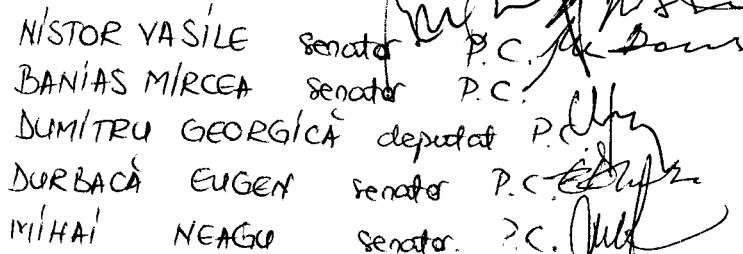 NISTOR VASILE senator P.C.
BANIAS MIRCEA senator P.C.
DUMITRU GEORGICĂ deputat P.C.
DURBACĂ EUGEN senator P.C.
MIHAI NEAGU senator. P.C.